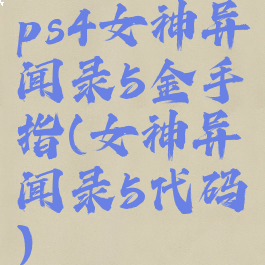 ps4女神异
闻录5金手
指(女神异
闻录5代码
)